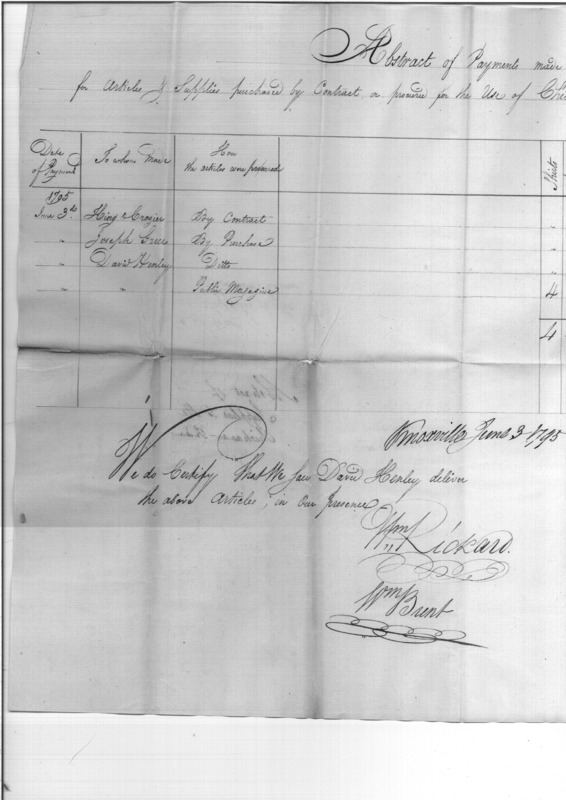 Abstract of Payments made
for Articles & Supplies purchased by Contract, or procured for the Use of
Date of Payment
To whom made
How the articles were procured
Shirts
1795
June 3d. King & Crozier By Contract "
" Joseph Greer By Purchase "
" David Henley Ditto "
" " Public Magazine 4
4
Knoxville June 3 1795
We do Certify that We saw David Henley deliver
the above Articles, in our presence
Wm. Rickard.
Wm Brent